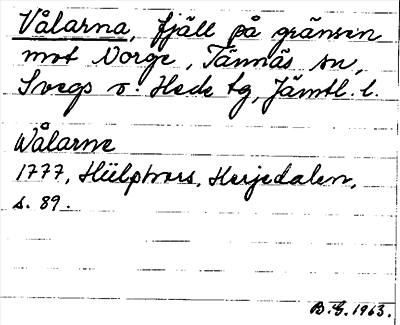 Vålarna, fjäll på gränsen
mot Norge, Tännäs sn,
Svegs o. Hede tg, Jämtl. l.
Wålarne
1777, Hülphers, Herjedalen,
s. 89.
B.E. 1963.